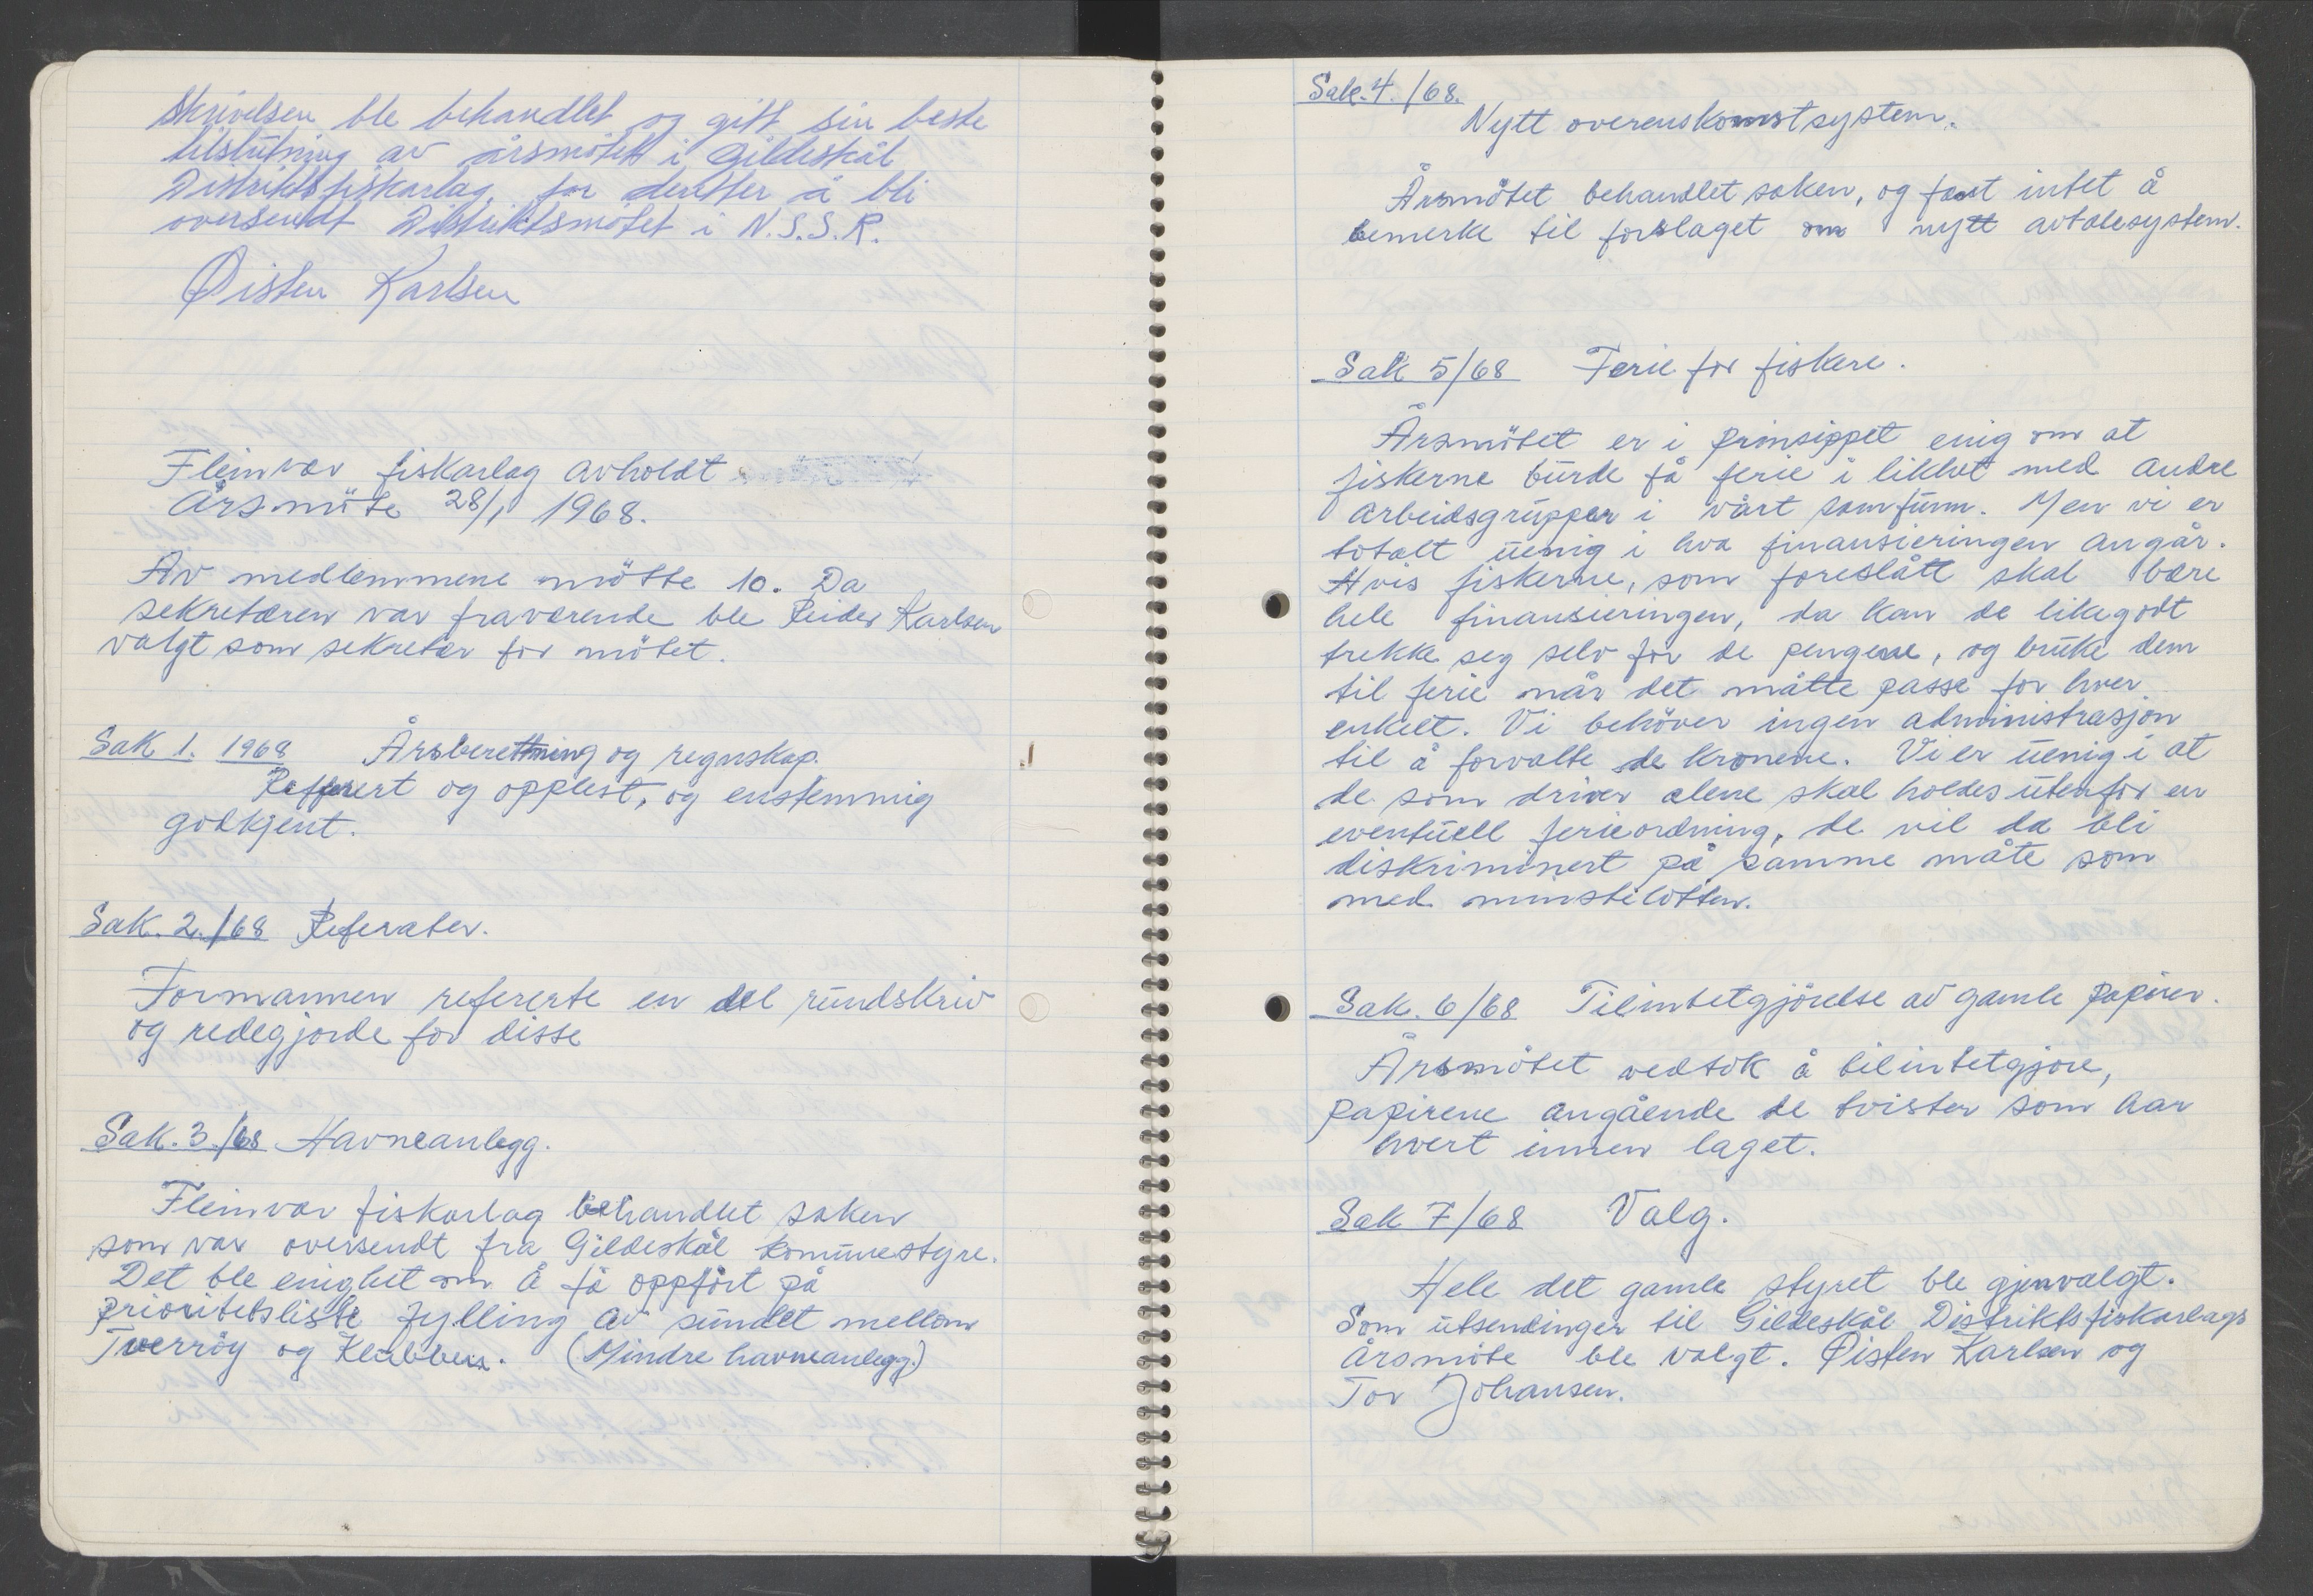 Skrivelsen ble behandlet og gitt sin beste
tilslutning av årsmötet i Gildeskål
Distriktsfiskarlag, for deretter å bli
oversendt Distriktsmötet i N.S.S.R.
Øisten Karlsen
Fleinvær fiskarlag avholdt
Årsmöte 28/1 1968.
Av medlemmene mötte 10. Da
sekretæren var fraværende ble Reidar Karlsen
valgt som sekretær for mötet.
Sak 1. 1968 Årsberettning og regnskap.
Refferert og opplest, og enstemmig
godkjent.
Sak. 2./68 Referater.
Formannen refererte en del rundskriv
og redegjorde for disse
Sak. 3./68 Havneanlegg.
Fleinvær fiskarlag behandlet saken
som var oversendt fra Gildeskål kommunestyre.
Det ble enighet om å få oppfört på
prioritetsliste fylling av sundet mellom
Tverröy og Klubben. (Mindre havneanlegg.)
Sak. 4./68.
Nytt overenskomstsystem.
Årsmötet behandlet saken, og fant intet å
bemerke til forslaget om nytt avtalesystem.
Sak 5/68 Ferie for fiskere.
Årsmötet er i prinsippet enig om at
fiskerne burde få ferie i likhet med andre
arbeidsgrupper i vårt samfunn. Men vi er
totalt uenig i hva finansieringen angår.
Hvis fiskerne, som foreslått skal bære
hele finansieringen, da kan de likegodt
trekke seg selv for de pengene, og bruke dem
til ferie når det måtte passe for hver
enkelt. Vi behöver ingen administrasjon
til å forvalte de kronene. Vi er uenig i at
de som driver alene skal holdes utenfor en
eventuell ferieordning, de vil da bli
diskriminert på samme måte som
med minstelotten.
Sak. 6/68 Tilintetgjörelse av gamle papirer.
Årsmötet vedtok å tilintetgjöre,
papirene angående de tvister som har
hvert innen laget.
Sak 7/68 Valg.
Hele det gamle styret ble gjenvalgt.
Som utsendinger til Gildeskål Distriktsfiskarlags
årsmöte ble valgt. Øisten Karlsen og
Tor Johansen.